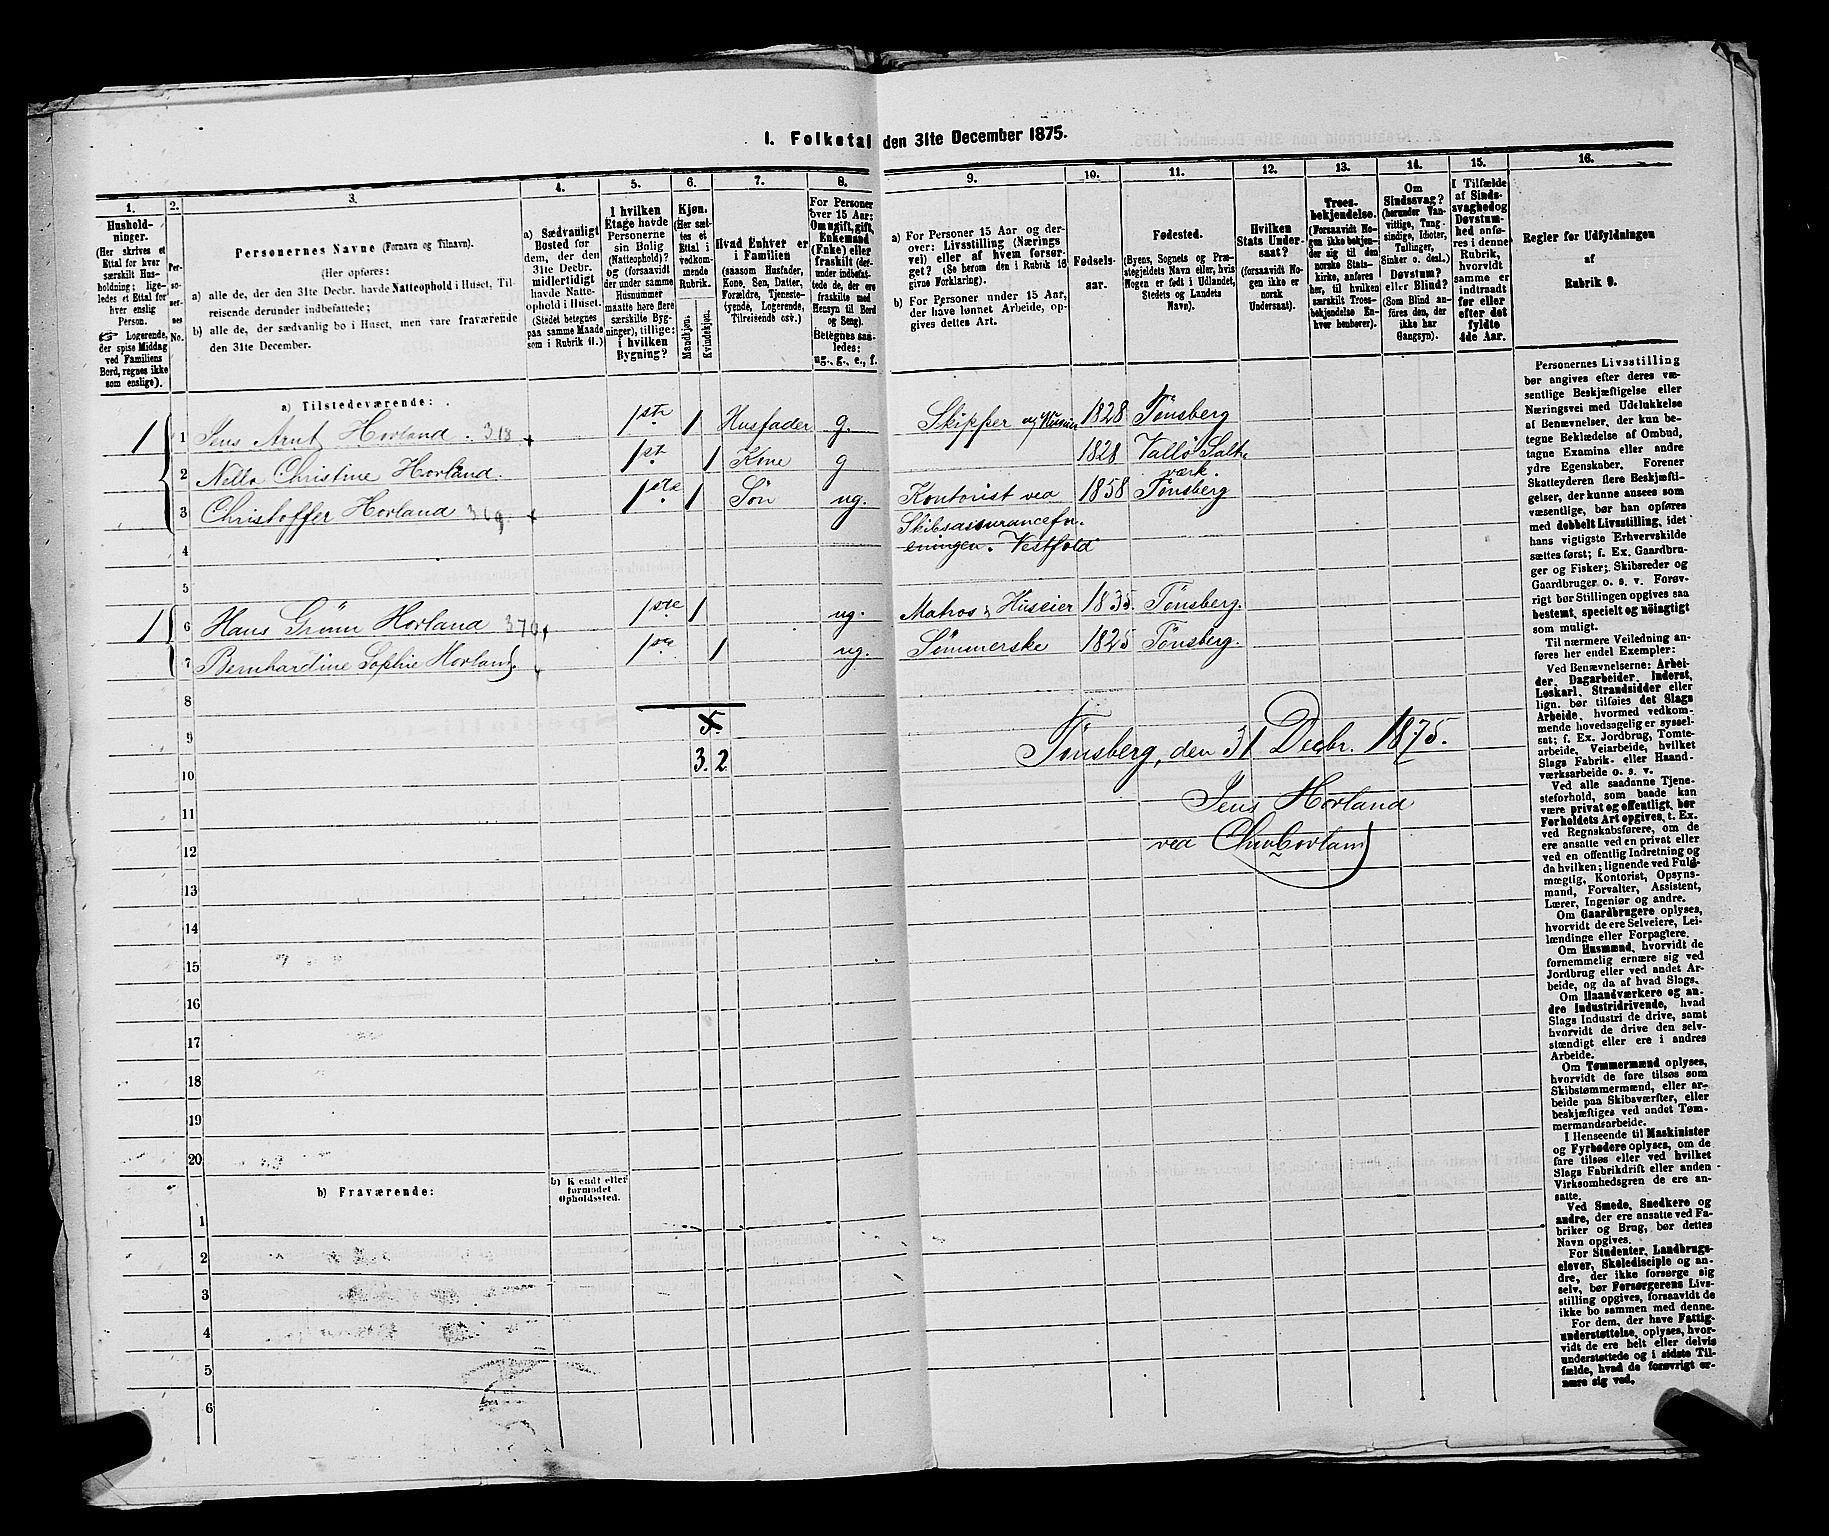 I. Folketal den 31te December 1875.
1.
Hushold-
ninger.
(Her skrives et
Ettal for hver
særskilt Hus-
holdning; lige-
ledes et Ettal for
hver enslig
Person.
Logerende,
der spise Middag
ved Familiens
Bord, regnes ikke
som enslige).
2.
Per-
so-
ner-
nes
No.
3.
Personernes Navne (Fornavn og Tilnavn).
(Her opføres:
a) alle de, der den 31te Decbr. havde Natteophold i Huset, Til-
reisende derunder indbefattede;
b) alle de, der sædvanlig bo i Huset, men vare fraværende
den 31te December.
4.
a) Sædvanligt
Bosted for
dem, der den
31te Decbr.
midlertidigt
havde Natte-
ophold i Huset.
(Stedet betegnes
paa samme Maade
som i Rubrik 11.)
5.
I hvilken
Etage havde
Personerne
sin Bolig
(Natteophold)?
og (forsaavidt
der under samme
Husnummer
maatte høre flere
særskilte Byg-
ninger), tillige:
i hvilken
Bygning?
6.
Kjøn.
(Her sæt-
tes et
Ettal i
vedkom-
mende
Rubrik.
Mandkjøn.
Kvindekjøn.
7.
Hvad Enhver er
i Familien
(saasom Husfader,
Kone, Søn, Datter,
Forældre, Tjeneste-
tyende, Logerende,
Tilreisende osv.)
8.
For Personer
over 15 Aar:
Om ugift, gift,
Enkemand
(Enke) eller
fraskilt (der-
under indbefat-
tede de, der ere
fraskilte med
Hensyn til Bord
og Seng).
Betegnes saa-
ledes:
ug., g., e., f.
9.
a) For Personer 15 Aar og der-
over: Livsstilling (Nærings
vei) eller af hvem forsør-
get? (Se herom den i Rubrik 16
givne Forklaring).
b) For Personer under 15 Aar,
der have lønnet Arbeide, op-
gives dettes Art.
10.
Fødsels-
aar.
11.
Fødested.
(Byens, Sognets og Præ-
stegjeldets Navn eller, hvis
Nogen er født i Udlandet,
Stedets og Landets
Navn).
12.
Hvilken
Stats Under-
saat?
(forsaavidt No-
gen ikke er
norsk
Undersaat).
13.
Troes-
bekjendelse.
(Forsaavidt No-
gen ikke bekjen-
der sig til den
norske Stats-
kirke, anføres
her, til hvilken
særskilt Troes-
bekjendelse En-
hver henhører).
14.
Om
Sindssvag?
(herunder Van-
vittige, Tung-
sindige, Idioter,
Tullinger,
Sinker o. desl.)
Døvstum?
eller Blind?
(Som Blind an-
føres den, der
ikke har
Gangsyn).
15.
I Tilfælde
af Sinds-
svaghed og
Døvstum-
hed anfø-
res i denne
Rubrik,
hvorvidt
samme er
indtraadt
før eller
efter det
fyldte
4de Aar.
16.
Regler for Udfyldningen
af
Rubrik 9.
a) Tilstedeværende:
1 1 Jens Arnt Horland. 318 1ste 1 Husfader g. Skipper og Huseier 1828 Tønsberg
2 Netto Christine Horland. 1st 1 Kone g 1828 Vallø Salt-
værk.
3 Christoffer Horland 369 1ste 1 Søn ug. Kontorist ved 1858 Tønsberg
Skibsassurancefor.
4 eningen. Vestfold
5
1 6 Hans Grønn Horland 370 1ste 1 ug. Matros & Huseier 1835. Tønsberg.
7 Bernhardine Sophie Horland 1ste 1 ug. Sømmerske 1825 Tønsberg.
8
9 5.
10 3. 2
Tønsberg, den 31 Decbr. 1875.
11 Jens Horland
12 ved Chr Horland
13
14
15
16
17
18
19
20
b) Fraværende:
b) Kjendt eller
formodet
Opholdssted.
1
2
3
4
5
6
Personernes Livsstilling
bør angives efter deres væ-
sentlige Beskjæftigelse eller
Næringsvei med Udelukkelse
af Benævnelser, der kun be-
tegne Beklædelse af Ombud,
tagne Examina eller andre
ydre Egenskaber. Forener
Skatteyderen flere Beskjæfti-
gelser, der kunne ansees som
væsentlige, bør han opføres
med dobbelt Livsstilling, idet
hans vigtigste Erhvervskilde
sættes først; f. Ex. Gaardbru-
ger og Fisker; Skibsreder og
Gaardbruger o. s. v. Forøv-
rigt bør Stillingen opgives saa
bestemt, specielt og nöiagtigt
som muligt.
Til nærmere Veiledning an-
føres her endel Exempler:
Ved Benævnelserne: Arbei-
der, Dagarbeider, Inderst,
Løskarl, Strandsidder eller
lign. bør tilføies det Slags
Arbeide, hvormed vedkom-
mende hovedsagelig er syssel-
sat; f. Ex. Jordbrug, Tomte-
arbeide, Veiarbeide, hvilket
Slags Fabrik- eller Haand-
værksarbeide o. s. v.
Ved alle saadanne Tjene-
steforhold, som baade kan
være privat og offentligt, bør
Forholdets Art opgives, t. Ex.
ved Regnskabsførere, om de
ere ansatte ved en privat eller
ved en offentlig Indretning og
da hvilken; lignende ved Fuld-
mægtig, Kontorist, Opsyns-
mand, Forvalter, Assistent,
Lærer, Ingeniør og andre.
Om Gaardbrugere oplyses,
hvorvidt de ere Selveiere, Lei-
lændinge eller Forpagtere.
Om Husmænd, hvorvidt de
fornemmelig ernære sig ved
Jordbrug eller ved andet Ar-
beide, og da af hvad Slags.
Om Haandværkere og an-
dre Industridrivende, hvad
Slags Industri de drive, samt
hvorvidt de drive den selv-
stændigt eller ere i andres
Arbeide.
Om Tømmermænd oplyses,
hvorvidt de fare tilsøs som
Skibstømmermænd, eller ar-
beide paa Skibsværfter, eller
beskjæftiges ved andet Tøm-
mermandsarbeide.
I Henseende til Maskinister
og Fyrbødere oplyses, om de
fare tilsøs eller ved hvilket
Slags Fabrikdrift eller anden
Virksomhedsgren de ere an-
satte.
Ved Smede, Snedkere og
andre, der ere ansatte ved Fa-
briker og Brug, bør dettes
Navn opgives.
For Studenter, Landbrugs-
elever, Skoledisciple og an-
dre, der ikke forsørge sig
selv, bør Forsørgerens Livs-
stilling opgives, forsaavidt de
ikke bo sammen med denne.
For dem, der have Fattig-
understøttelse, oplyses, hvor-
vidt de ere helt eller delvis
understøttede og i sidste Til-
fælde, hvad de forøvrigt er-
nære sig ved.